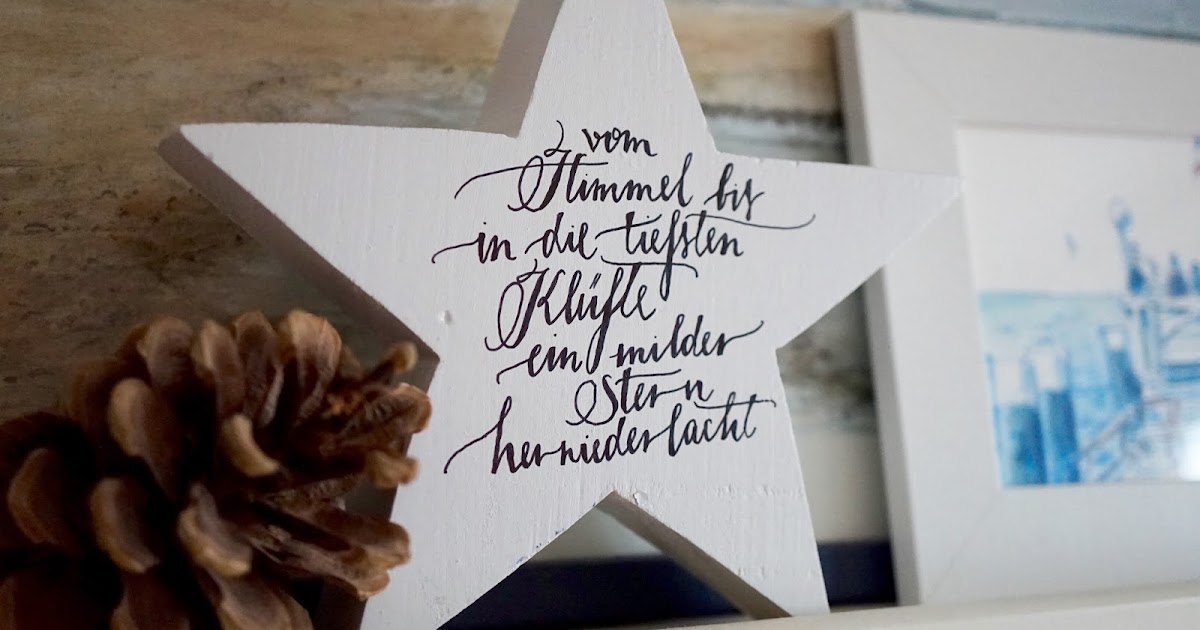 vom
Himmel bis
in die tiefsten
Klüfte
ein milder
Stern
herniederlacht